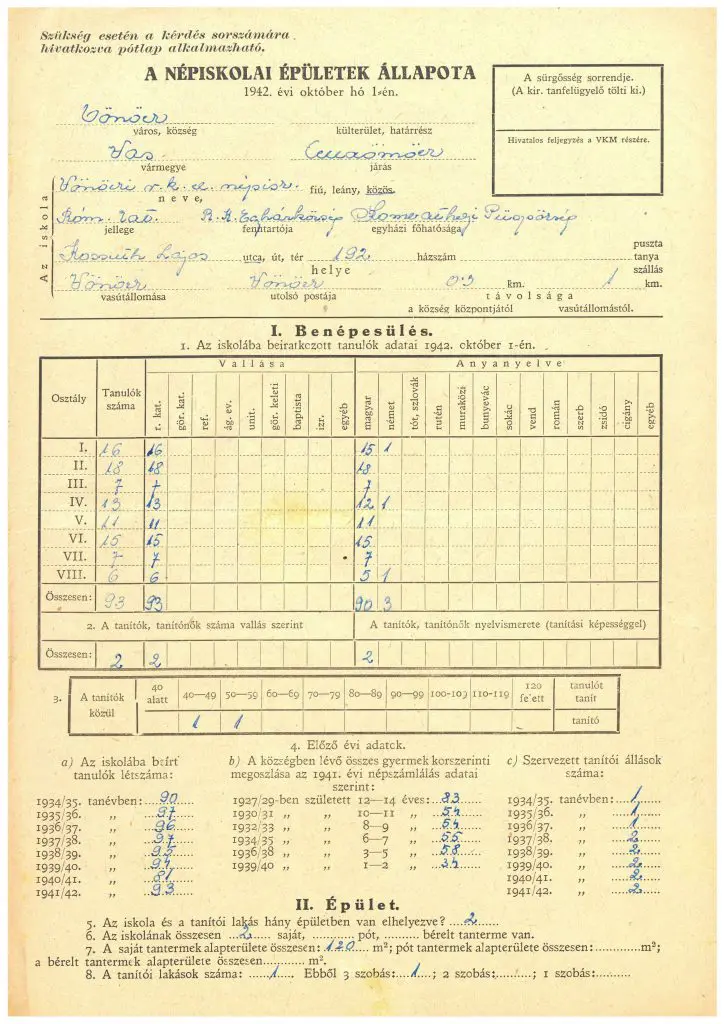 Szükség esetén a kérdés sorszámára
hivatkozva pótlap alkalmazható.
A NÉPISKOLAI ÉPÜLETEK ÁLLAPOTA
1942. évi október hó 1-én.
A sürgősség sorrendje.
(A kir. tanfelügyelő tölti ki.)
Hivatalos feljegyzés a VKM részére.
Vönöck
város, község külterület, határrész
Vas Celldömölk
vármegye járás
Az iskola
Vönöcki r. k. el. népisk. fiú, leány, közös.
neve,
Róm. kat. R. K. Egyházközség Szombathelyi Püspökség
jellege fenntartója egyházi főhatósága
Kossuth Lajos utca, út, tér 192 házszám puszta tanya szállás
helye
Vönöck Vönöck 0.3 km. 1 km.
vasútállomása utolsó postája távolsága
a község központjától vasútállomástól.
I. Benépesülés.
1. Az iskolába beiratkozott tanulók adatai 1942. október 1-én.
Osztály Tanulók száma Vallása Anyanyelve
r. kat. gör. kat. ref. ág. ev. unit. gör. keleti baptista izr. egyéb magyar német tót, szlovák rutén muraközi bunyevác sokác vend román szerb zsidó cigány egyéb
I. 16 16 15 1
II. 18 18 18
III. 7 7 7
IV. 13 13 12 1
V. 11 11 11
VI. 15 15 15
VII. 7 7 7
VIII. 6 6 5 1
Összesen: 93 93 90 3
2. A tanítók, tanítónők száma vallás szerint A tanítók, tanítónők nyelvismerete (tanítási képességgel)
Összesen: 2 2 2
3. A tanítók közül 40 alatt 40—49 50—59 60—69 70—79 80—89 90—99 100-109 110-119 120 felett tanulót tanít
1 1 tanító
4. Előző évi adatok.
a) Az iskolába beírt tanulók létszáma:
1934/35. tanévben: 90
1935/36. „ 97
1936/37. „ 96
1937/38. „ 97
1938/39. „ 95
1939/40. „
1940/41. „ 81
1941/42. „ 93
b) A községben lévő összes gyermek korszerinti
megoszlása az 1941. évi népszámlálás adatai
szerint:
1927/29-ben született 12—14 éves: 83
1930/31 „ „ 10—11 „ 54
1932/33 „ „ 8—9 „ 54
1934/35 „ „ 6—7 „ 55
1936/38 „ „ 3—5 „ 58
1939/40 „ „ 1—2 „ 34
c) Szervezett tanítói állások
száma:
1934/35. tanévben: 1
1935/36. „ 1
1936/37. „ 1
1937/38. „ 2
1938/39. „ 2
1939/40. „ 2
1940/41. „ 2
1941/42. „ 2
II. Épület.
5. Az iskola és a tanítói lakás hány épületben van elhelyezve? 2
6. Az iskolának összesen 2 saját, pót, bérelt tanterme van.
7. A saját tantermek alapterülete összesen: 120 m²; pót tantermek alapterülete összesen: m²;
a bérelt tantermek alapterülete összesen m².
8. A tanítói lakások száma: 1. Ebből 3 szobás: 1; 2 szobás: ; 1 szobás: